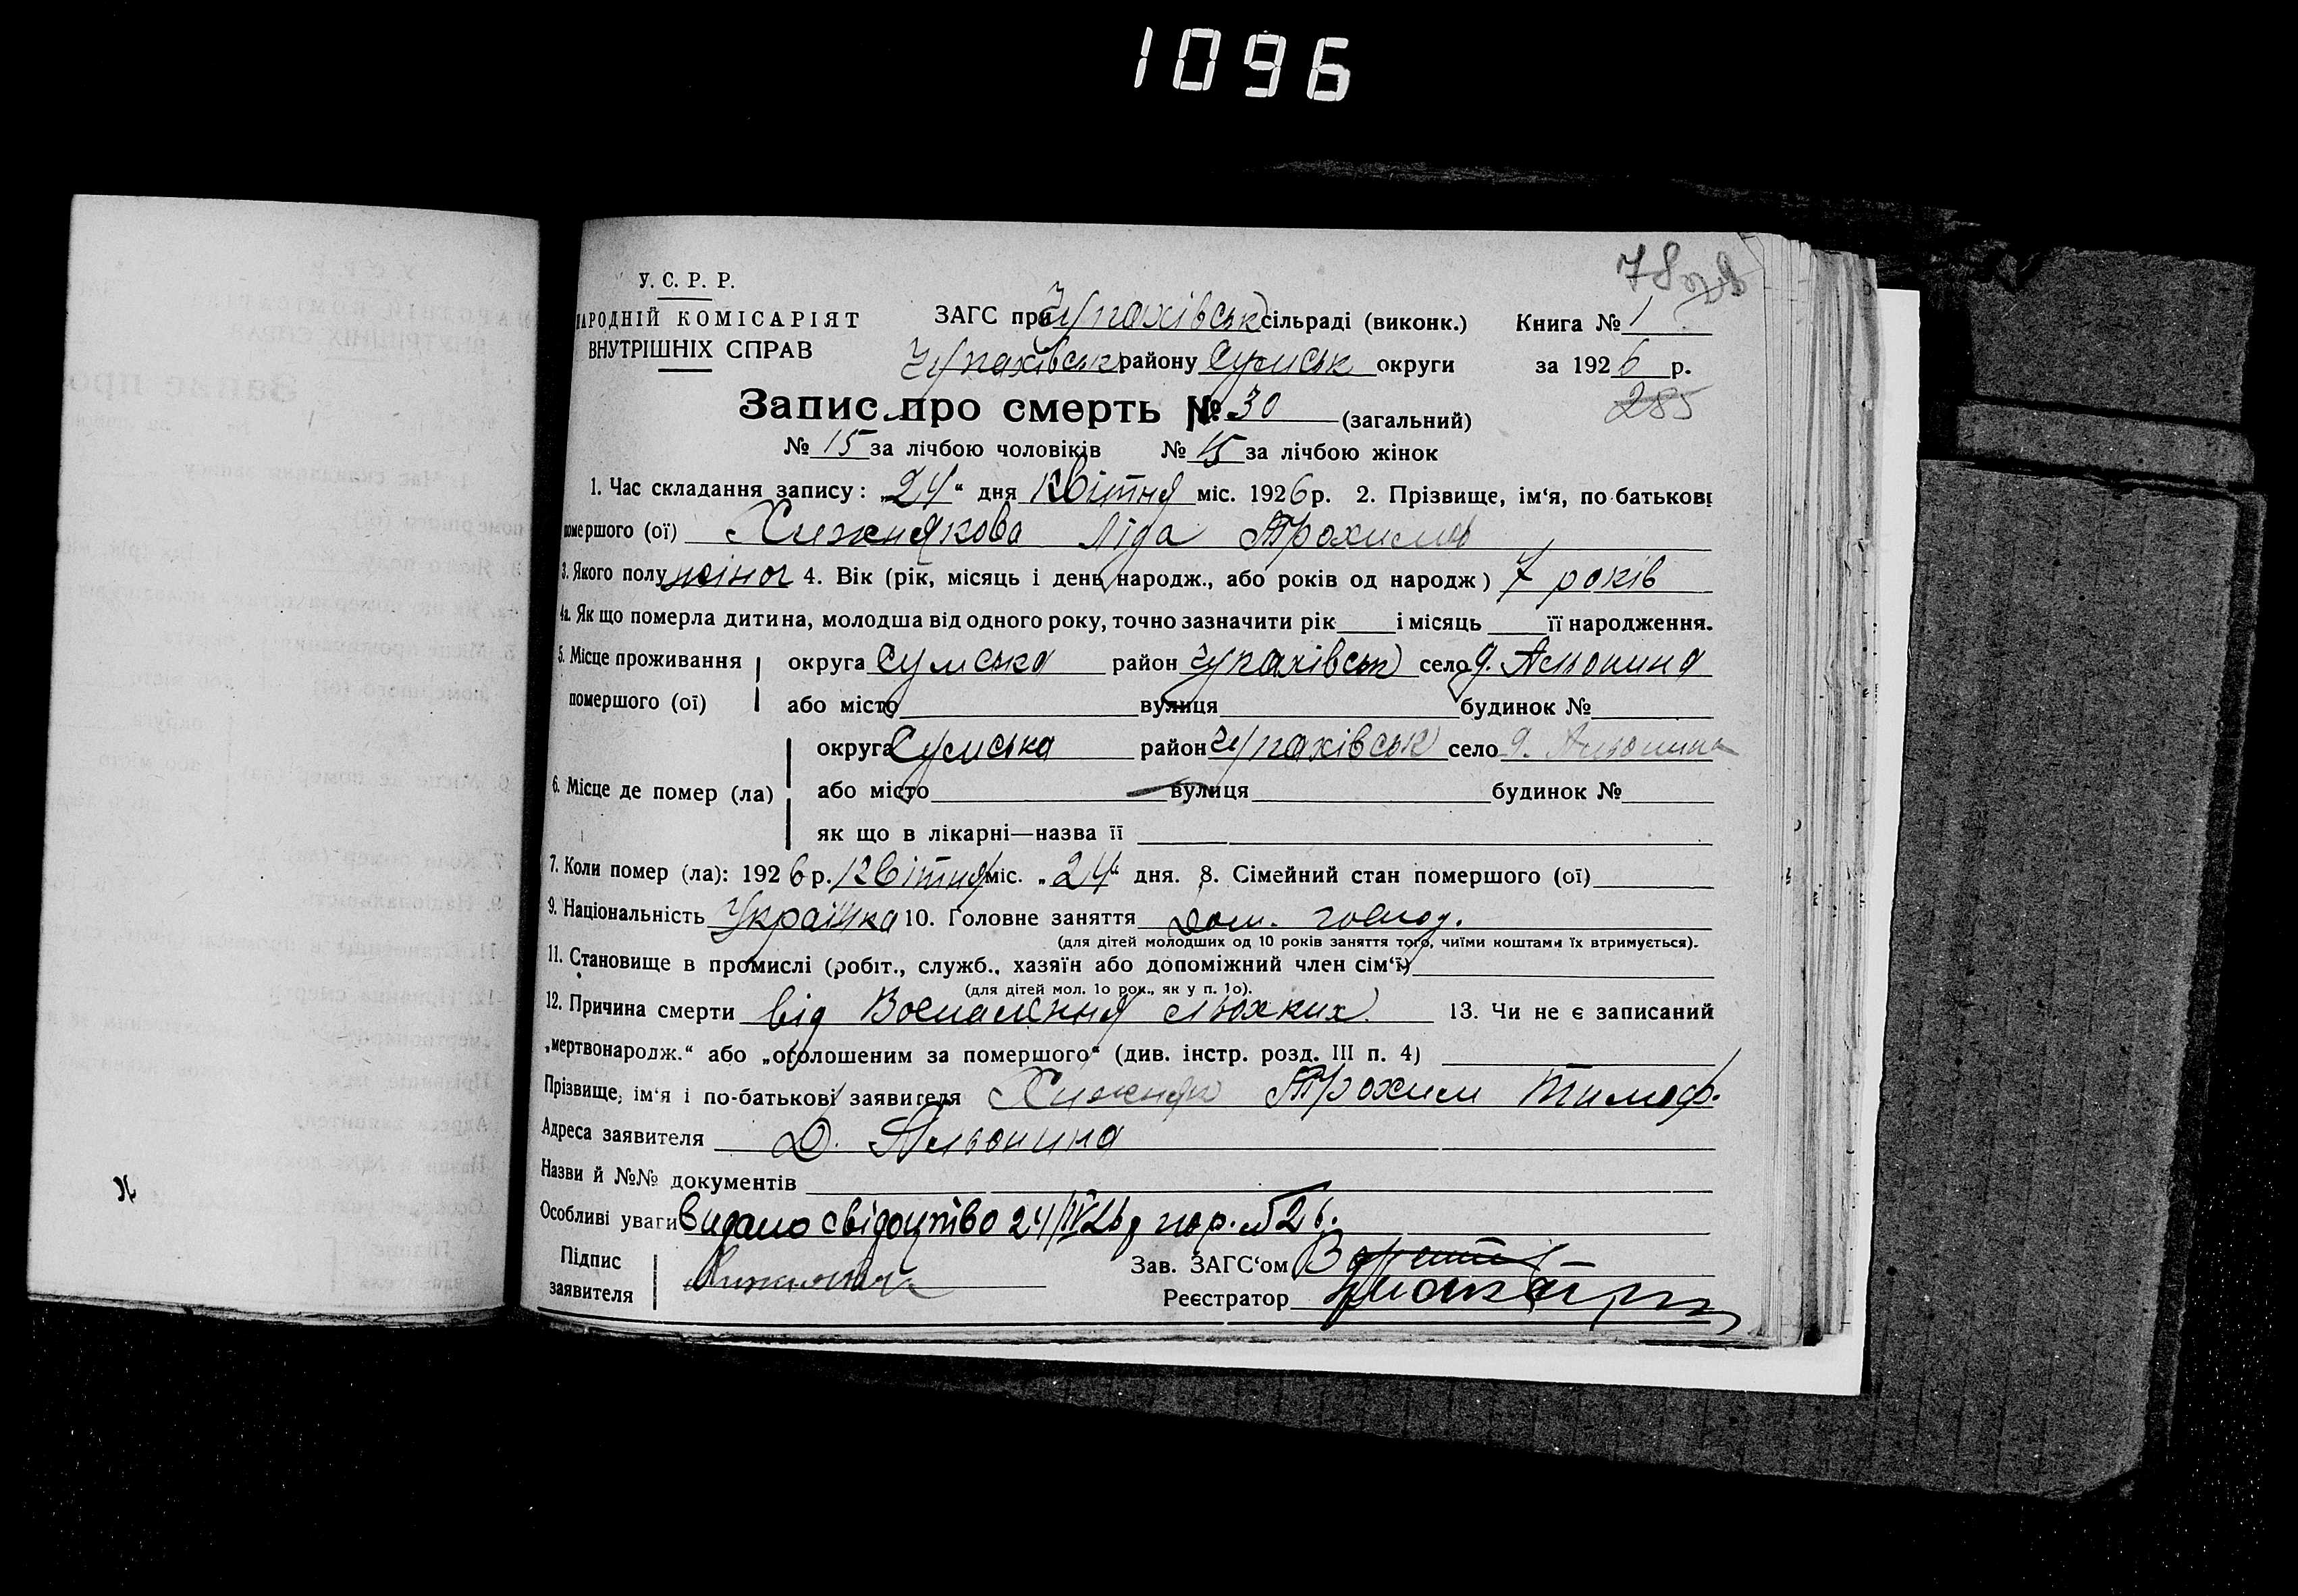 1096
У. С. Р. Р.
НАРОДНІЙ КОМІСАРІЯТ
ВНУТРІШНІХ СПРАВ
78
ЗАГС при Чупахівськ сільраді (виконк.) Книга № 1
Чупахівськ району Сумськ округи за 1926 р.
Запис про смерть № 30 (загальний)
285
№ 15 за лічбою чоловіків № 15 за лічбою жінок
1. Час складання запису: „24“ дня Квітня міс. 1926 р. 2. Прізвище, ім‘я, по-батькові
помершого (ої) Хижнякова Ліда Трохимов
3. Якого полу жіноч 4. Вік (рік, місяць і день народж., або років од народж) 7 років
4а. Як що померла дитина, молодша від одного року, точно зазначити рік і місяць її народження.
5. Місце проживання округа Сумська район Чупахівськ село д. Альошина
помершого (ої) або місто вулиця будинок №
округа Сумська район Чупахівськ село д. Альошина
6. Місце де помер (ла) або місто вулиця будинок №
як що в лікарні—назва її
7. Коли помер (ла): 1926 р. Квітня міс. „24“ дня. 8. Сімейний стан помершого (ої)
9. Національність Українка 10. Головне заняття дом. господ.
(для дітей молодших од 10 років заняття того, чиїми коштами їх втримується).
11. Становище в промислі (робіт., служб., хазяїн або допоміжний член сім‘ї)
(для дітей мол. 10 рок., як у п. 10).
12. Причина смерти від Воспаления льохких 13. Чи не є записаний
„мертвонародж.“ або „оголошеним за помершого“ (див. інстр. розд. III п. 4)
Прізвище, ім‘я і по-батькові заявителя Хижняк Трохим Тимоф.
Адреса заявителя Д. Альошина
Назви й №№ документів
Особливі уваги Видано свідоцтво 24/IV 26 р
Підпис
заявителя
Зав. ЗАГС‘ом
Реєстратор